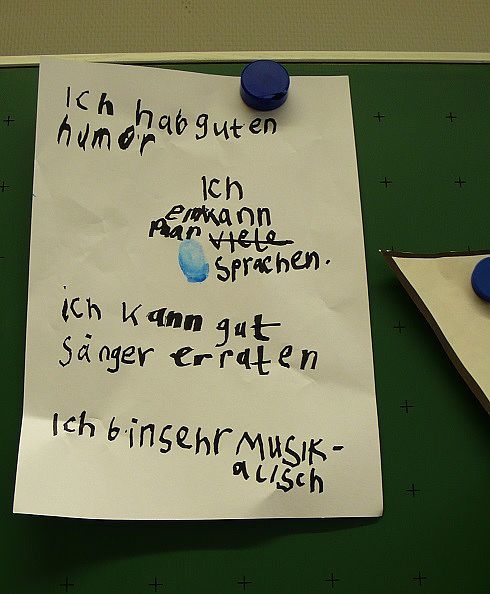 Ich hab guten
humor
Ich
ein kann
paar viele
sprachen.
ich kann gut
Sänger erraten
Ich bin sehr Musik-
alisch